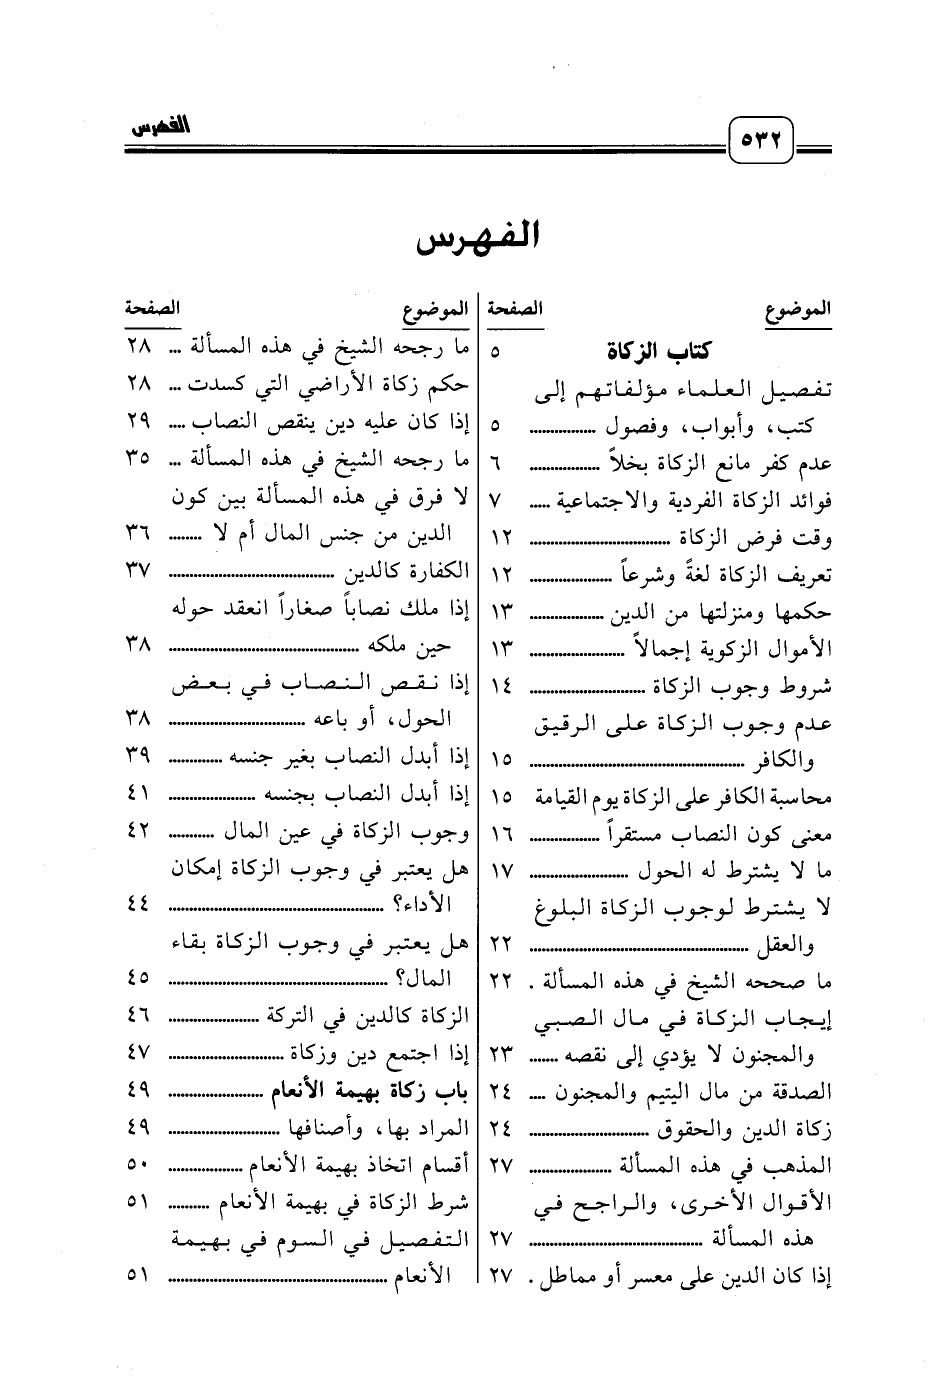 ٥٣٢
الفهرس
الفهرس
الموضوع الصفحة
كتاب الزكاة ٥
تفصيل العلماء مؤلفاتهم إلى
كتب، وأبواب، وفصول ................ ٥
عدم كفر مانع الزكاة بخلاً ................. ٦
فوائد الزكاة الفردية والاجتماعية ..... ٧
وقت فرض الزكاة .................................. ١٢
تعريف الزكاة لغةً وشرعاً .................... ١٢
حكمها ومنزلتها من الدين .................. ١٣
الأموال الزكوية إجمالاً ....................... ١٣
شروط وجوب الزكاة ............................ ١٤
عدم وجوب الزكاة على الرقيق
والكافر .................................................... ١٥
محاسبة الكافر على الزكاة يوم القيامة ١٥
معنى كون النصاب مستقراً ................. ١٦
ما لا يشترط له الحول ........................ ١٧
لا يشترط لوجوب الزكاة البلوغ
والعقل ..................................................... ٢٢
ما صححه الشيخ في هذه المسألة . ٢٢
إيجاب الزكاة في مال الصبي
والمجنون لا يؤدي إلى نقصه ....... ٢٣
الصدقة من مال اليتيم والمجنون .... ٢٤
زكاة الدين والحقوق ............................. ٢٤
المذهب في هذه المسألة .................... ٢٧
الأقوال الأخرى، والراجح في
هذه المسألة .......................................... ٢٧
إذا كان الدين على معسر أو مماطل . ٢٧
الموضوع الصفحة
ما رجحه الشيخ في هذه المسألة ... ٢٨
حكم زكاة الأراضي التي كسدت ... ٢٨
إذا كان عليه دين ينقص النصاب .... ٢٩
ما رجحه الشيخ في هذه المسألة ... ٣٥
لا فرق في هذه المسألة بين كون
الدين من جنس المال أم لا ........ ٣٦
الكفارة كالدين ........................................ ٣٧
إذا ملك نصاباً صغاراً انعقد حوله
حين ملكه .............................................. ٣٨
إذا نقص النصاب في بعض
الحول، أو باعه ................................. ٣٨
إذا أبدل النصاب بغير جنسه ............. ٣٩
إذا أبدل النصاب بجنسه ..................... ٤١
وجوب الزكاة في عين المال ........... ٤٢
هل يعتبر في وجوب الزكاة إمكان
الأداء؟ .................................................... ٤٤
هل يعتبر في وجوب الزكاة بقاء
المال؟ ..................................................... ٤٥
الزكاة كالدين في التركة ...................... ٤٦
إذا اجتمع دين وزكاة ............................ ٤٧
باب زكاة بهيمة الأنعام ....................... ٤٩
المراد بها، وأصنافها ........................... ٤٩
أقسام اتخاذ بهيمة الأنعام .................. ٥٠
شرط الزكاة في بهيمة الأنعام .......... ٥١
التفصيل في السوم في بهيمة
الأنعام ..................................................... ٥١